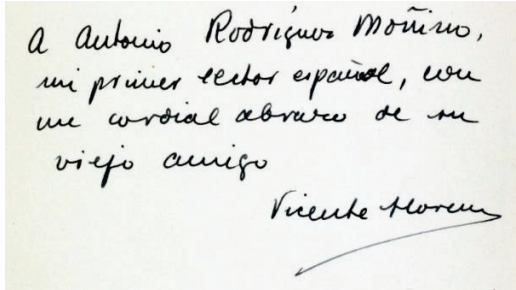 A Antonio Rodríguez Moñino,
mi primer lector español, con
un cordial abrazo de su
viejo amigo
Vicente Llorens